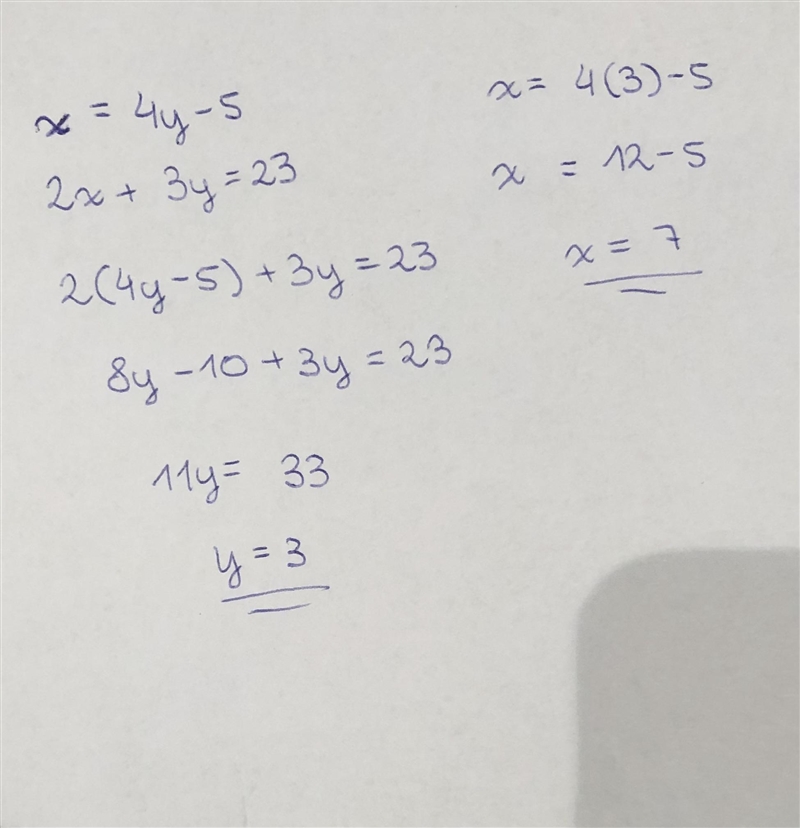 x = 4y - 5
2x + 3y = 23
2(4y - 5) + 3y = 23
8y - 10 + 3y = 23
11y = 33
y = 3
x = 4(3) - 5
x = 12 - 5
x = 7